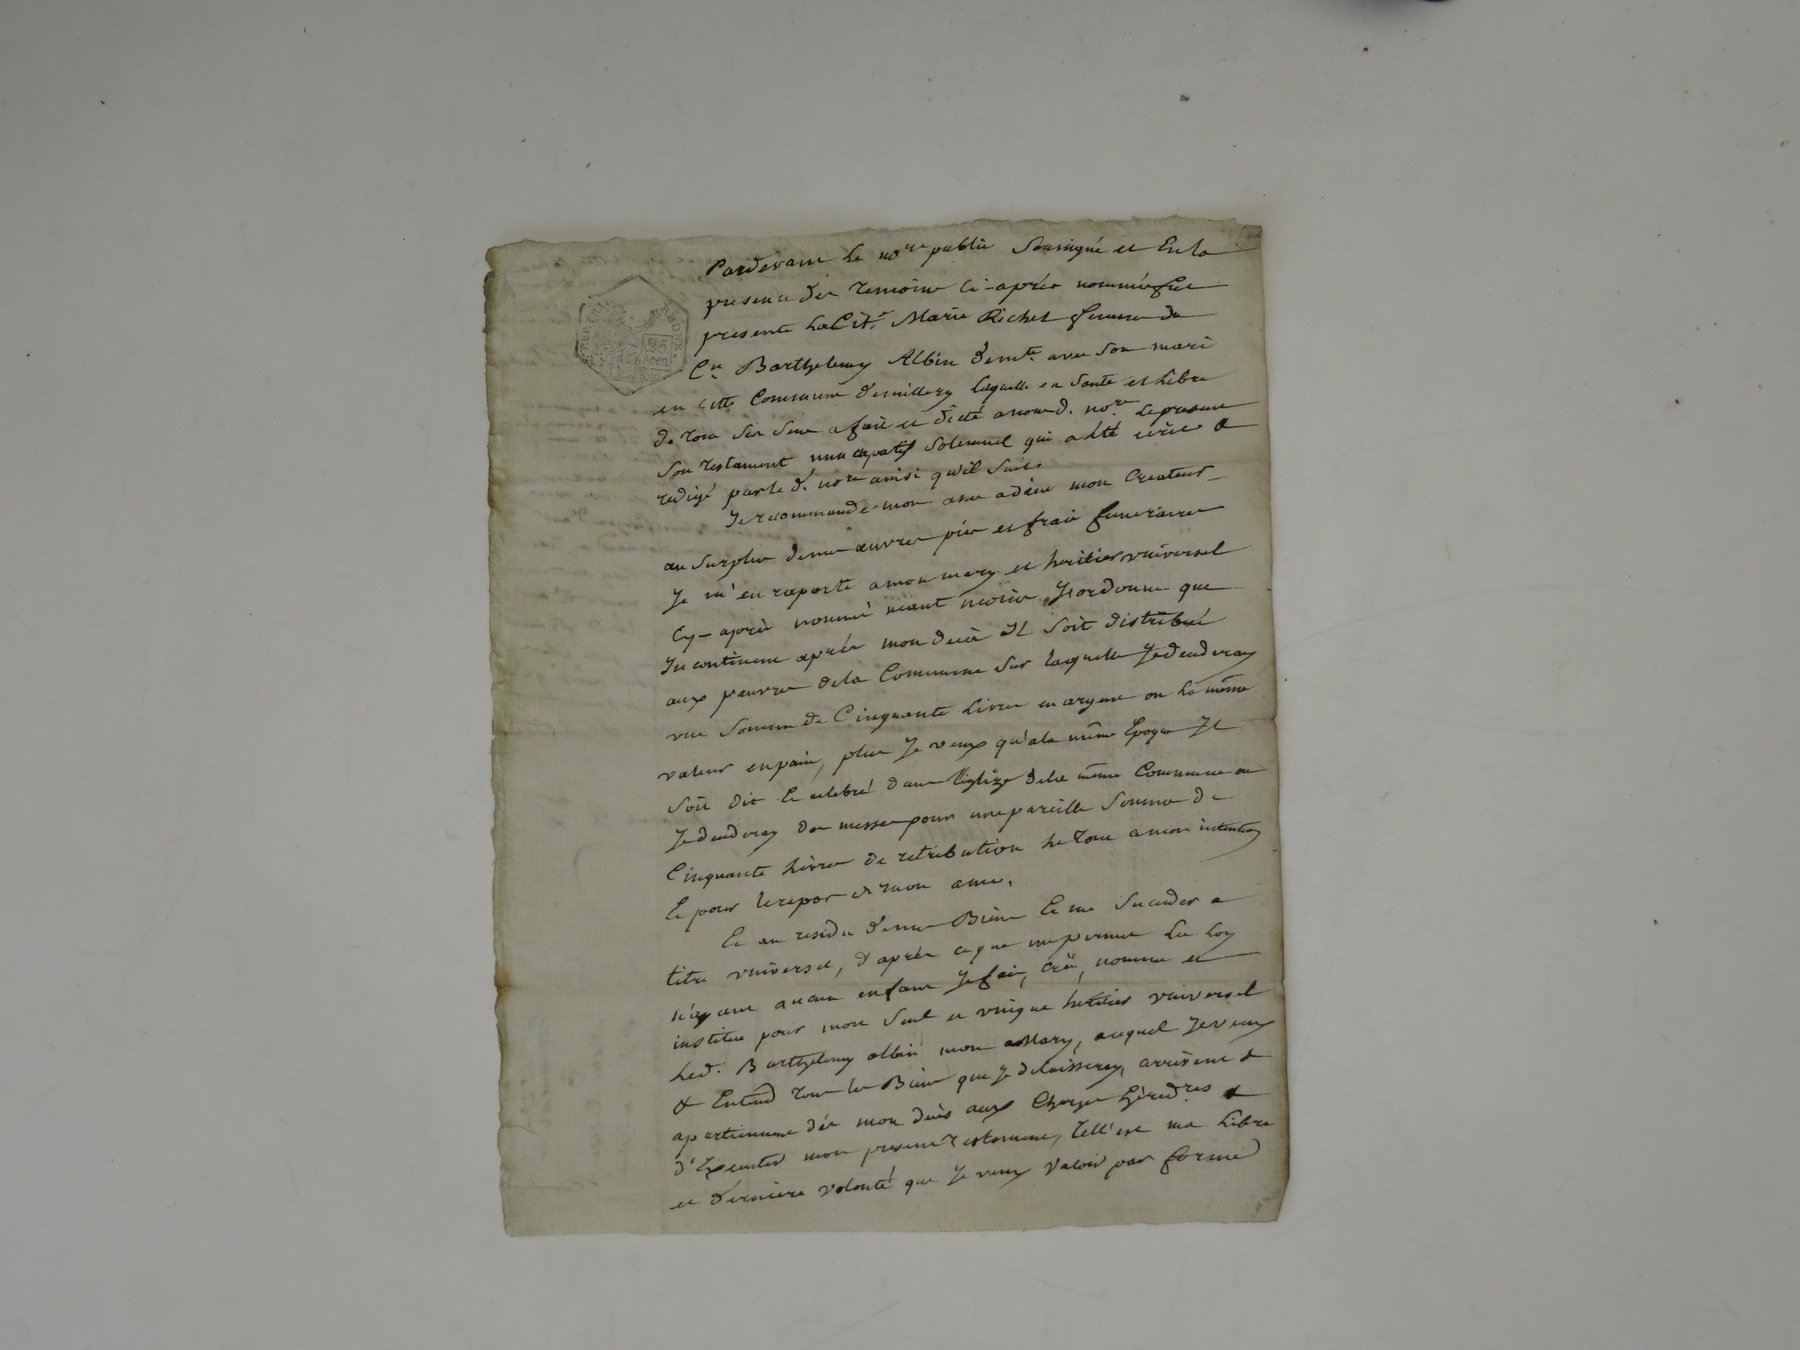 Pardevant le no.re public Soussigné et En la
presence des temoins ci-après nommés fut
presente La Cit.e Marie Richet femme du
C.n Barthelemy Albin dem.te avec Son mari
en cette Commune de millery laquelle en Santé et Libre
de tous Ses Sens a fait et dicté a nous d. no.re Le present
Son testament nuncupatif Solemnel qui a été écrit &
redigé par le d. no.re ainsi qu'il Suit.
Je recommande mon ame a dieu mon Createur
au Surplus de mes œuvres pies et frais funeraires
Je m'en raporte a mon mary et heritier vniversel
Cy-après nommé neant moins J'ordonne que
Incontinent après mon decès Il Soit distribué
aux pauvres de la Commune Sur laquelle Je decederay
vne Somme de Cinquante Livres en argent ou La même
valeur en pain, plus Je veux qu'a la même Epoque Il
Soit dit Et celebré dans l'Eglize de la même Commune ou
Je decederay des messes pour une pareille Somme de
Cinquante Livres de retribution Le tout a mon intention
Et pour le repos de mon ame.
Et au residu de mes Biens Et me Succeder a
titre vniversel, d'après ce que me permet La Loy
n'ayant aucun enfant Je fais, créé, nomme et
institue pour mon Seul et vnique héritier vniversel
Led. Barthelemy albin mon Mary, auquel Je veux
& Entend tous les Biens que Je delaisserey, arrivent &
apartiennent dès mon decès aux Charges héred.res &
d'Executer mon present testament, tell'est ma Libre
et derniere volonté que Je veux Valoir par forme
REP. FRA.
25
CEN.